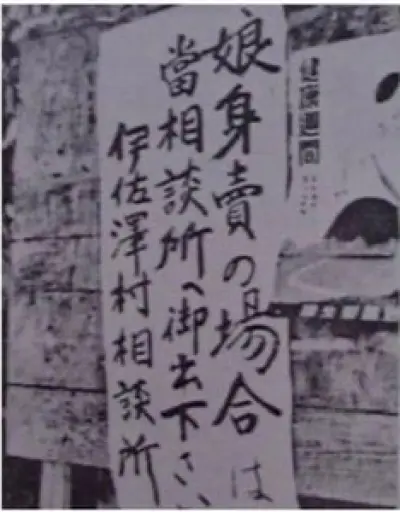 娘身賣の場合は
當相談所へ御出下さい
伊佐澤村相談所
健康週間